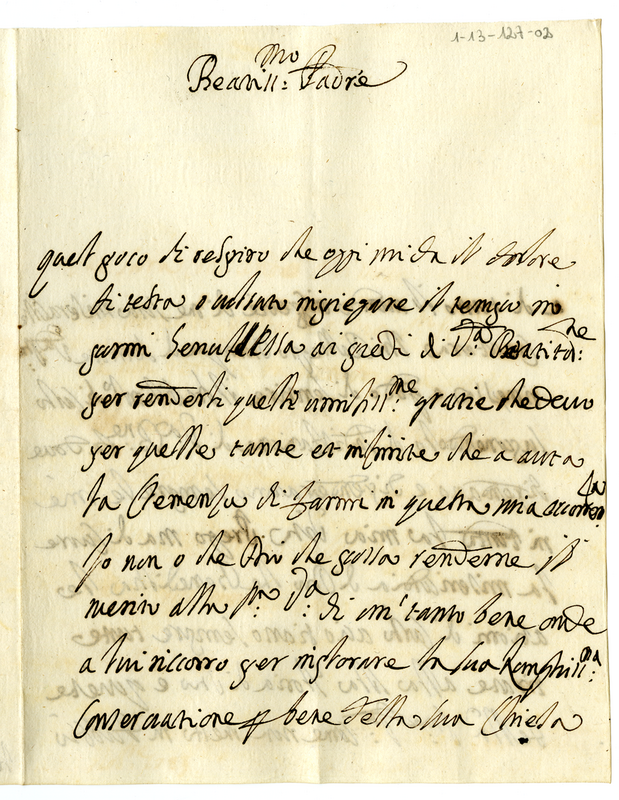 1-13-127-02
Beatiss:mo Padre
quel poco di respiro che oggi mi da il dolore
di testa o voluto inpiegare il tempo in
ai piedi di V.a Beatitd:ne
per renderli quelle umiliss:me gratie che devo
per quelle tante et infinite che a auta
la Clemenza di farmi in questa mia
Io non o che Dio che possa renderne il
merito alla S.a V.a di un' tanto bene onde
a lui riccorro per inplorare la sua lunghiss:ma
Conservatione p bene della sua Chiesa